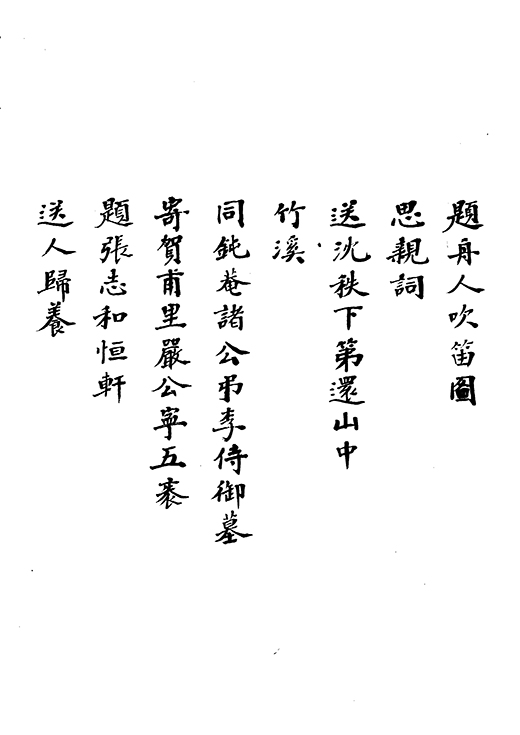 題舟人吹笛圖
思親詞
送沈秩下第還山中
竹溪
同鈍菴諸公弔李侍御墓
寄賀甫里嚴公寧五袠
題張志和恒軒
送人歸養